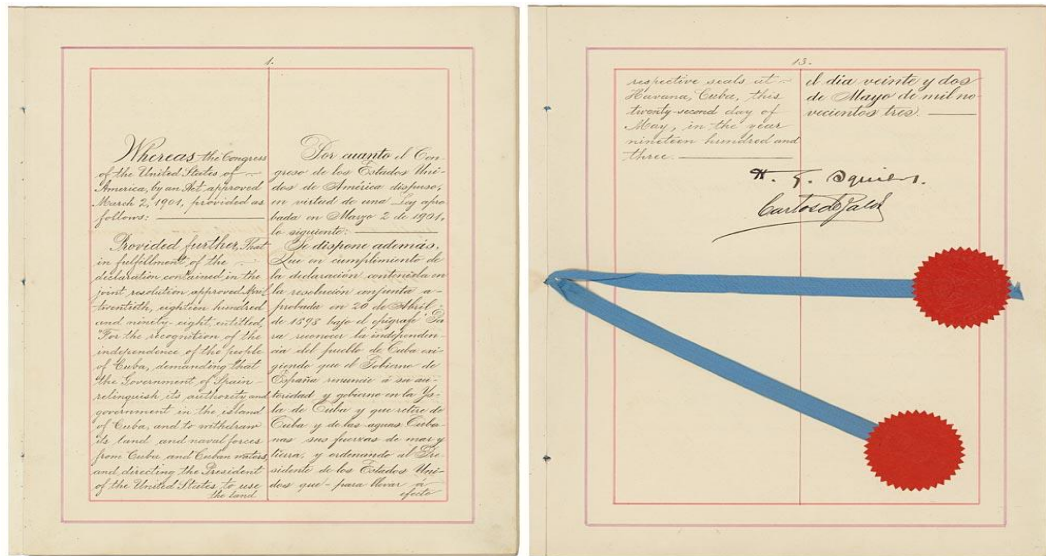 1.
Whereas, the Congress
of the United States of
America, by an Act approved
March 2, 1901, provided as
follows:
Provided further, That
in fulfillment of the
declaration contained in the
joint resolution approved April
twentieth, eighteen hundred
and ninety-eight, entitled,
"For the recognition of the
independence of the people
of Cuba, demanding that
the Government of Spain
relinquish its authority and
government in the island
of Cuba, and to withdraw
its land and naval forces
from Cuba and Cuban waters,
and directing the President
of the United States to use
the land
Por cuanto el Con-
greso de los Estados Uni-
dos de América dispuso,
en virtud de una Ley apro-
bada en Marzo 2 de 1901,
lo siguiente:
Se dispone además,
Que en cumplimiento de
la declaración contenida en
la resolución conjunta a-
probada en 20 de Abril
de 1898 bajo el epígrafe "Pa-
ra reconocer la independen-
cia del pueblo de Cuba exi-
giendo que el Gobierno de
España renuncie á su au-
toridad y gobierno en la Ys-
la de Cuba y que retire de
Cuba y de las aguas Cuba-
nas sus fuerzas de mar y
tierra, y ordenando al Pre-
sidente de los Estados Uni-
dos que para llevar á
efecto
13.
respective seals at
Havana, Cuba, this
twenty-second day of
May, in the year
nineteen hundred and
three.
el día veinte y dos
de Mayo de mil no-
vecientos tres.
H. G. Squiers.
Carlos de Zaldo